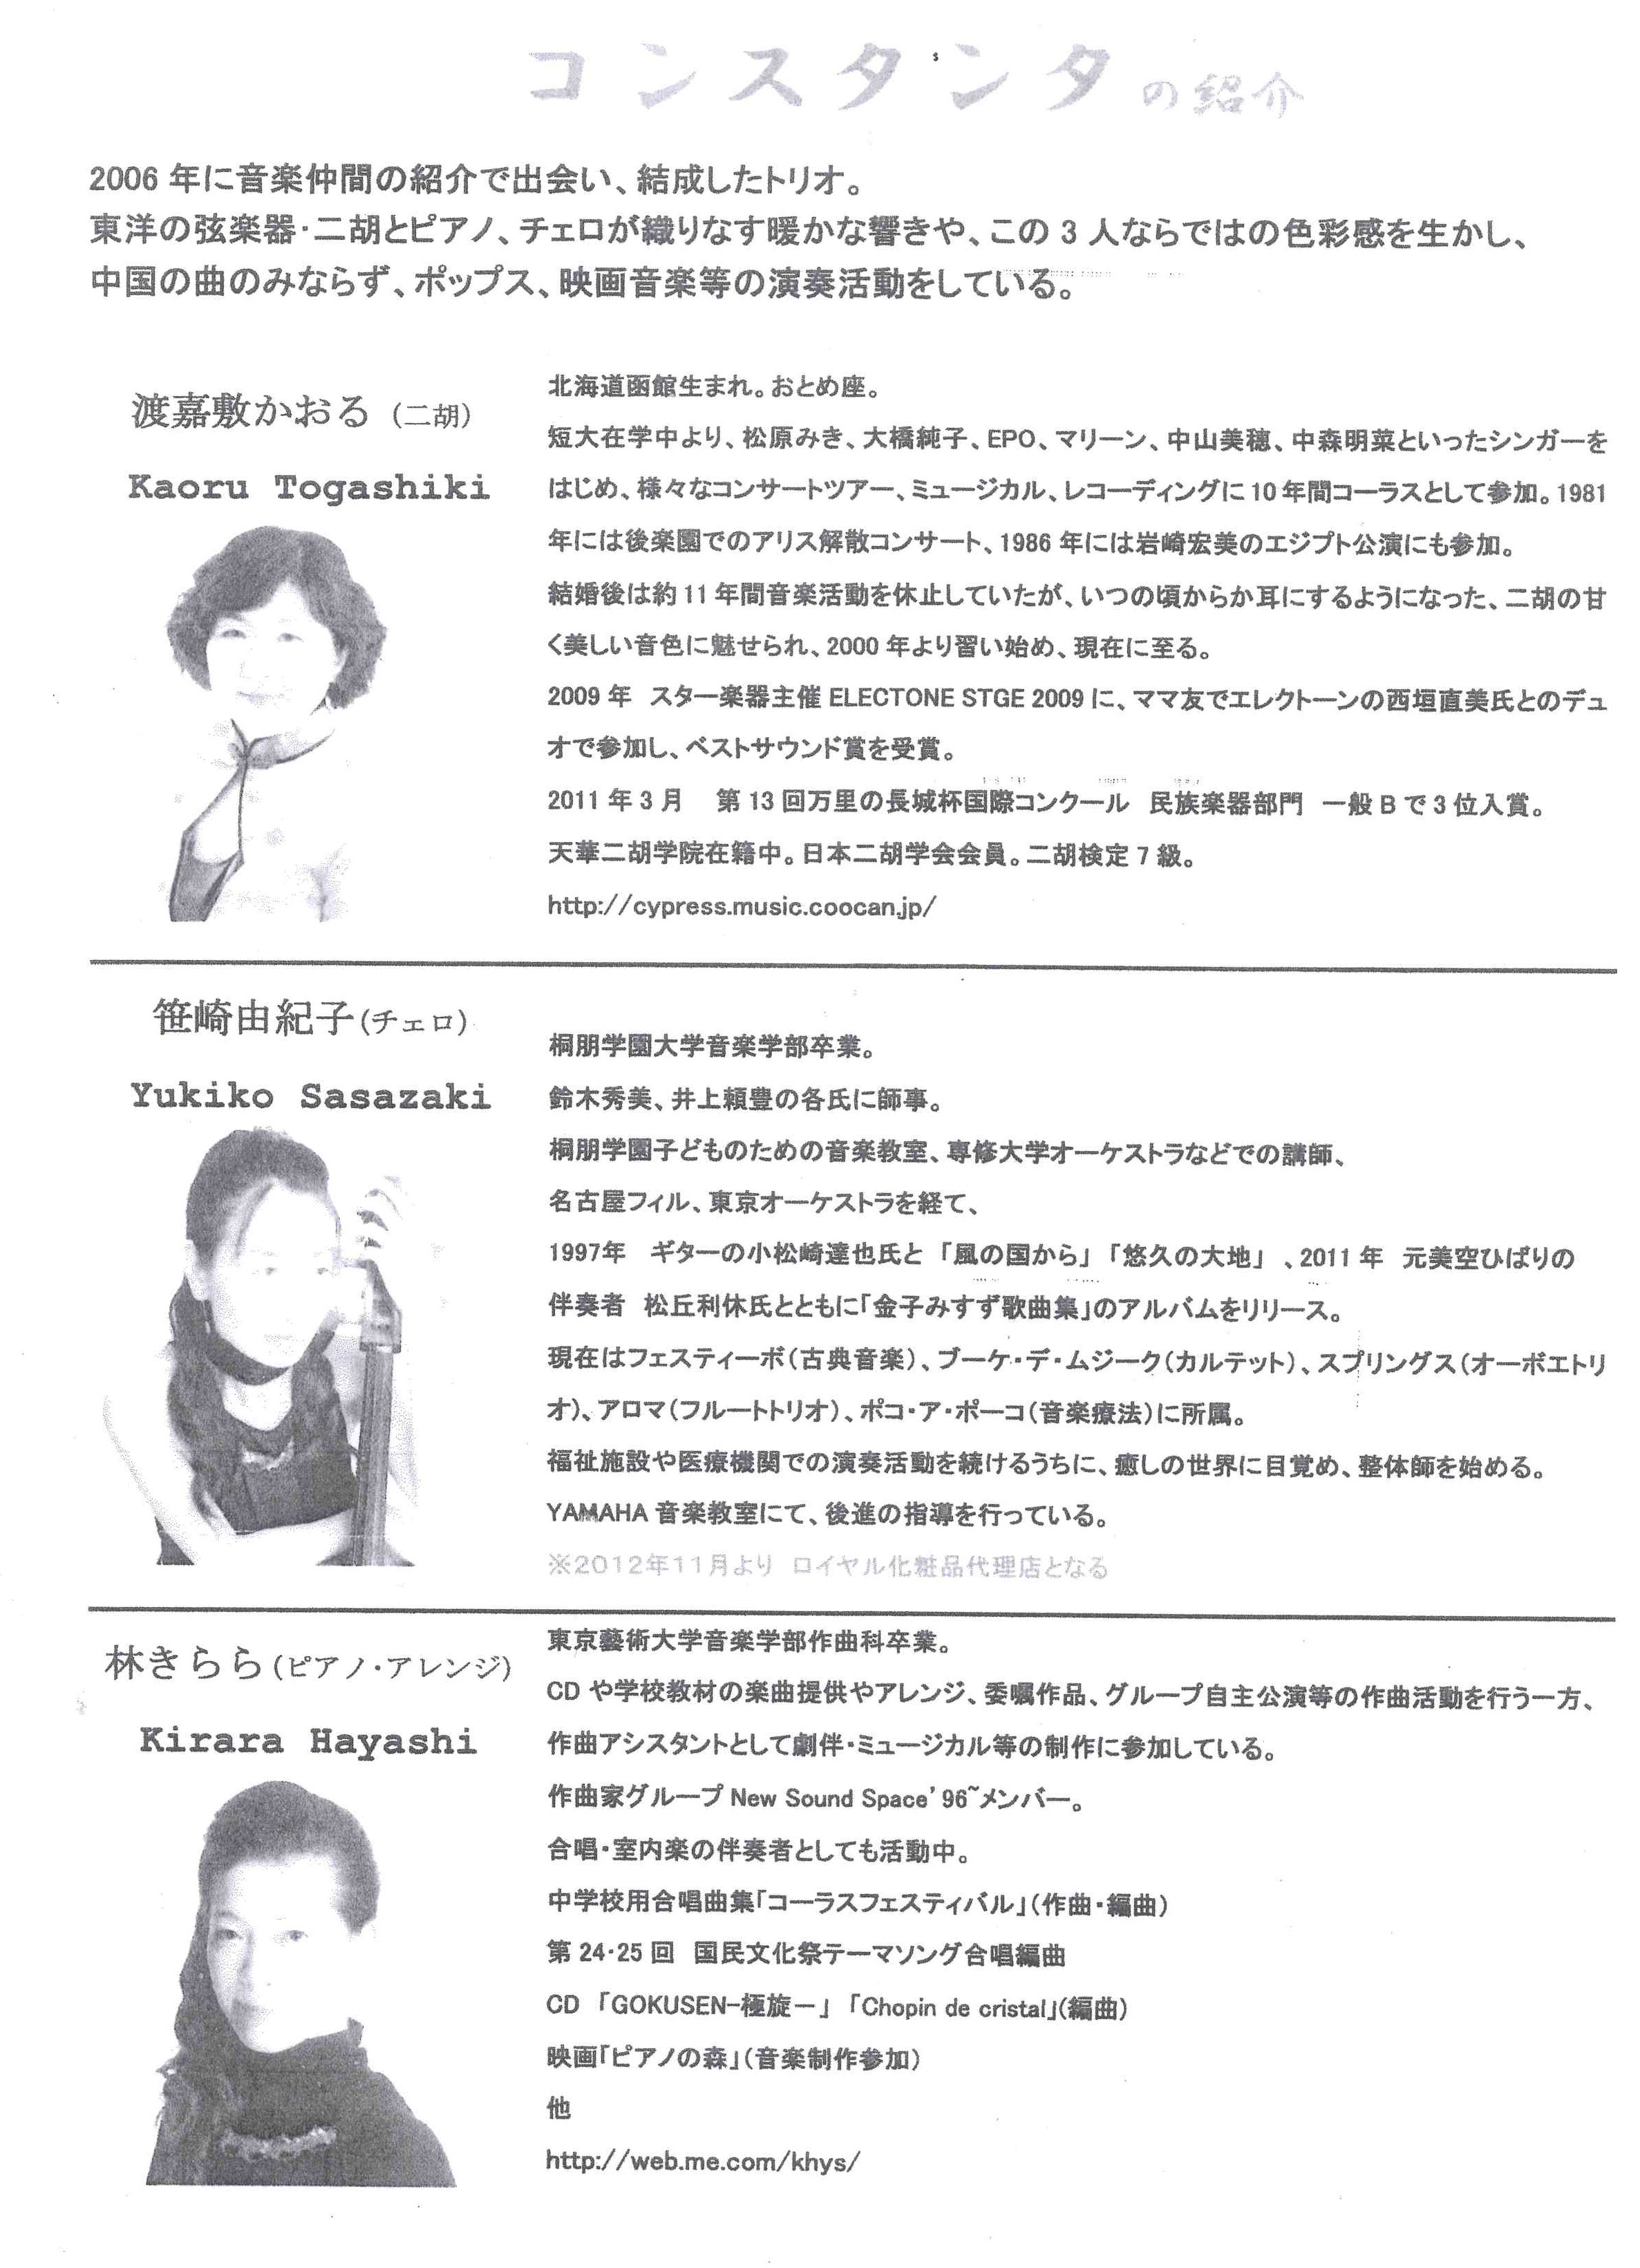 コンスタンタの紹介
2006 年に音楽仲間の紹介で出会い、結成したトリオ。
東洋の弦楽器・二胡とピアノ、チェロが織りなす暖かな響きや、この 3 人ならではの色彩感を生かし、
中国の曲のみならず、ポップス、映画音楽等の演奏活動をしている。
渡嘉敷かおる（二胡）
Kaoru Togashiki
北海道函館生まれ。おとめ座。
短大在学中より、松原みき、大橋純子、EPO、マリーン、中山美穂、中森明菜といったシンガーを
はじめ、様々なコンサートツアー、ミュージカル、レコーディングに 10 年間コーラスとして参加。1981
年には後楽園でのアリス解散コンサート、1986 年には岩崎宏美のエジプト公演にも参加。
結婚後は約 11 年間音楽活動を休止していたが、いつの頃からか耳にするようになった、二胡の甘
く美しい音色に魅せられ、2000 年より習い始め、現在に至る。
2009 年　スター楽器主催 ELECTONE STGE 2009 に、ママ友でエレクトーンの西垣直美氏とのデュ
オで参加し、ベストサウンド賞を受賞。
2011 年 3 月　第 13 回万里の長城杯国際コンクール　民族楽器部門　一般 B で 3 位入賞。
天華二胡学院在籍中。日本二胡学会会員。二胡検定 7 級。
http://cypress.music.coocan.jp/
笹崎由紀子(チェロ)
Yukiko Sasazaki
桐朋学園大学音楽学部卒業。
鈴木秀美、井上頼豊の各氏に師事。
桐朋学園子どものための音楽教室、専修大学オーケストラなどでの講師、
名古屋フィル、東京オーケストラを経て、
1997年　ギターの小松崎達也氏と「風の国から」「悠久の大地」、2011 年　元美空ひばりの
伴奏者　松丘利休氏とともに「金子みすず歌曲集」のアルバムをリリース。
現在はフェスティーボ（古典音楽）、ブーケ・デ・ムジーク（カルテット）、スプリングス（オーボエトリ
オ）、アロマ（フルートトリオ）、ポコ・ア・ポーコ（音楽療法）に所属。
福祉施設や医療機関での演奏活動を続けるうちに、癒しの世界に目覚め、整体師を始める。
YAMAHA 音楽教室にて、後進の指導を行っている。
※2012年11月より　ロイヤル化粧品代理店となる
林きらら(ピアノ・アレンジ)
Kirara Hayashi
東京藝術大学音楽学部作曲科卒業。
CD や学校教材の楽曲提供やアレンジ、委嘱作品、グループ自主公演等の作曲活動を行う一方、
作曲アシスタントとして劇伴・ミュージカル等の制作に参加している。
作曲家グループ New Sound Space’ 96~メンバー。
合唱・室内楽の伴奏者としても活動中。
中学校用合唱曲集「コーラスフェスティバル」（作曲・編曲）
第 24・25 回　国民文化祭テーマソング合唱編曲
CD 「GOKUSEN−極旋−」「Chopin de cristal」（編曲）
映画「ピアノの森」（音楽制作参加）
他
http://web.me.com/khys/